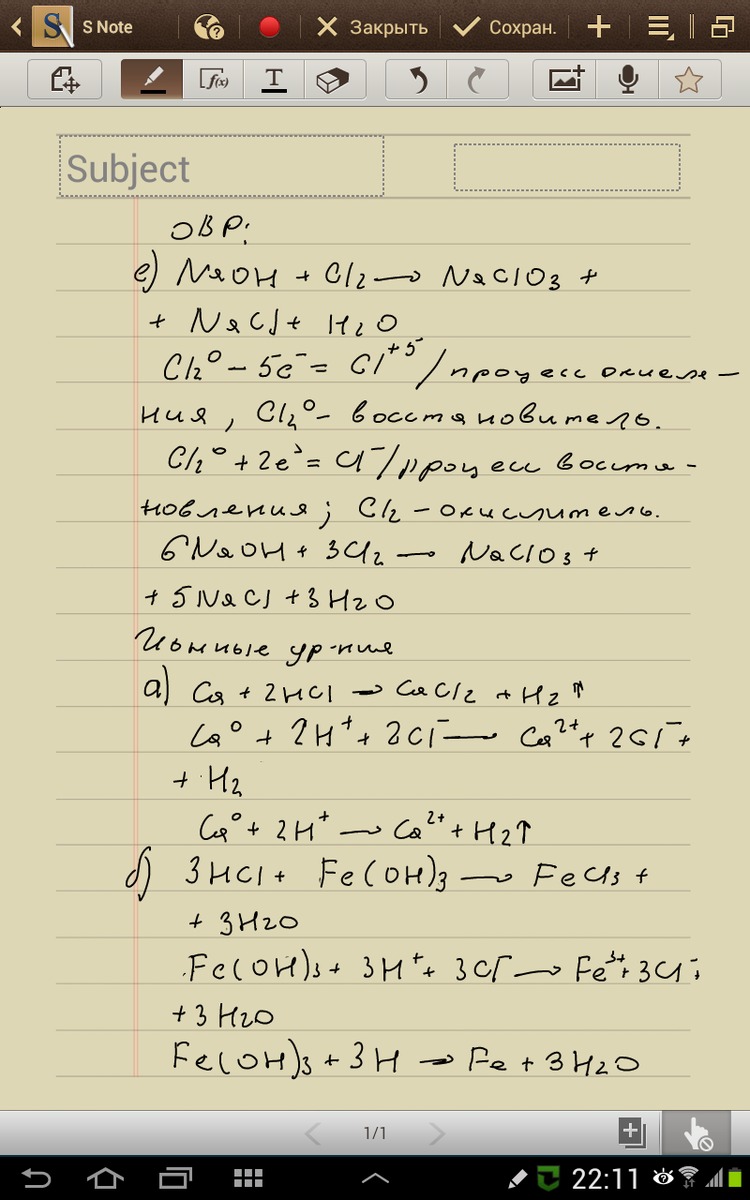 S Note
Закрыть
Сохран.
f(x)
T
Subject
ОВР:
е) NaOH + Cl₂ → NaClO₃ +
+ NaCl + H₂O
Cl₂⁰ – 5e⁻ = Cl⁺⁵/процесс окисле –
ния, Cl₂⁰ – восстановитель.
Cl₂⁰ + 2e⁻ = Cl⁻/процесс восста –
новления; Cl₂ – окислитель.
6NaOH + 3Cl₂ → NaClO₃ +
+ 5NaCl + 3H₂O
Ионные ур-ния
а) Ca + 2HCl → CaCl₂ + H₂↑
Ca⁰ + 2H⁺ + 2Cl⁻ → Ca²⁺ + 2Cl⁻ +
+ H₂
Ca⁰ + 2H⁺ → Ca²⁺ + H₂↑
б) 3HCl + Fe(OH)₃ → FeCl₃ +
+ 3H₂O
Fe(OH)₃ + 3H⁺ + 3Cl⁻ → Fe³⁺ + 3Cl⁻ +
+ 3H₂O
Fe(OH)₃ + 3H → Fe + 3H₂O
1/1
22:11